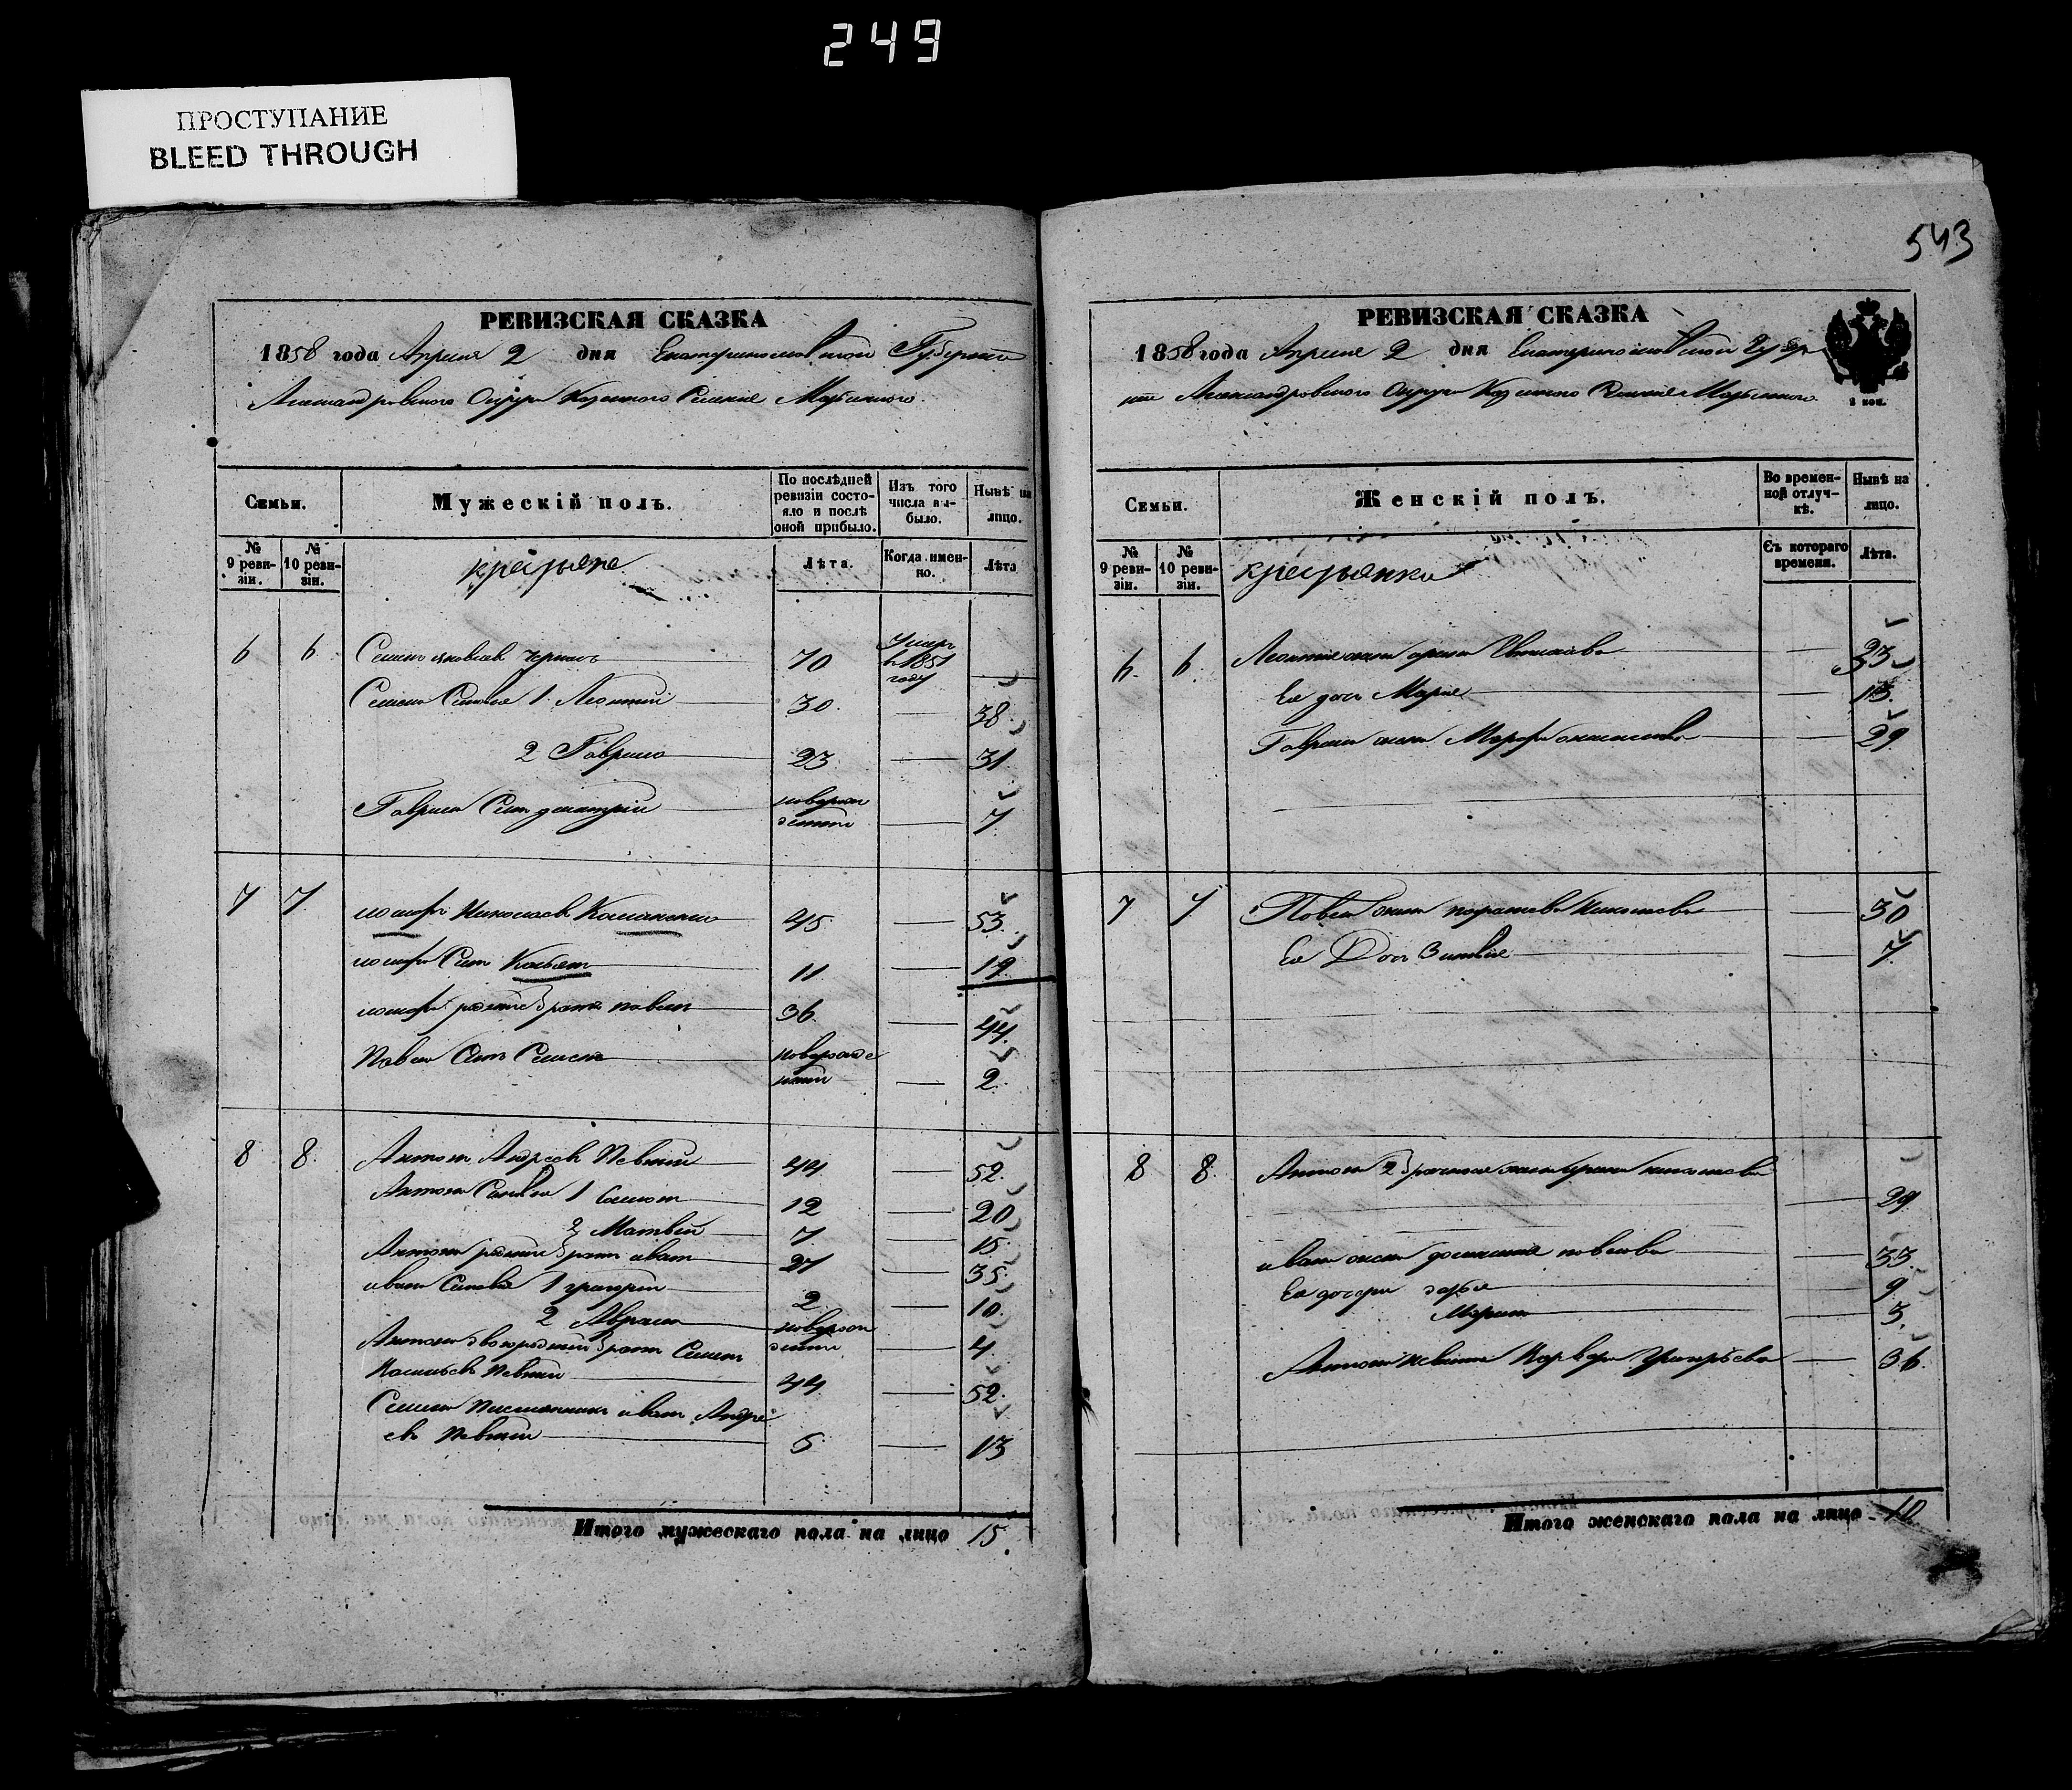 249
ПРОСТУПАНИЕ
BLEED THROUGH
543
РЕВИЗСКАЯ СКАЗКА
1858 года Апреля 2 дня Екатеринославской Губернии
Александровского Округа Казенного Селения Марьинского
Семьи.
Мужескій полъ.
По послѣдней ревизіи состояло и послѣ оной прибыло.
Изъ того числа выбыло.
Нынѣ на лицо.
№ 9 ревизіи.
№ 10 ревизіи.
крестьяне
Лѣта.
Когда именно.
Лѣта
6 6 Семен Яковлев 70 Умер в 1851 году
Семена Сыновья 1 Леонтий 30 38
2 Гаврило 23 31
Гаврила Сын Дмитрий новорожденный 7
7 7 Николаев 45 53
Сын 11 19
родной брат Павел 36 44
Павла Сын Семен новорожденный 2
8 8 Антон Андреев Певний 44 52
Антона Сыновья 1 12 20
2 Матвей 7 15
Антона родной брат Иван 27 35
Ивана Сыновья 1 Григорий 2 10
2 Абрам новорожденный 4
Антона двоюродный брат Семен
Певний 44 52
Семена племянник Иван Андреев
Певний 5 13
Итого мужескаго пола на лицо 15.
РЕВИЗСКАЯ СКАЗКА
1858 года Апреля 2 дня Екатеринославской Губернии
Александровского Округа Казенного Селения Марьинского
2 коп.
Семьи.
Женскій полъ.
Во временной отлучкѣ.
Нынѣ на лицо.
№ 9 ревизіи.
№ 10 ревизіи.
крестьянки
Съ котораго времени.
Лѣта.
6. 6. Леонтия жена 33
Ея дочь Мария 13.
Гаврила жена Марфа 29
7 7 Павла жена 30
Ея Дочь 7.
8 8. Антона 2 брачная жена Ирина
29
Ивана жена Павлова 33.
Ея дочери 9
Марина 3.
Антона Варвара Григорьева 36
Итого женскаго пола на лицо 10